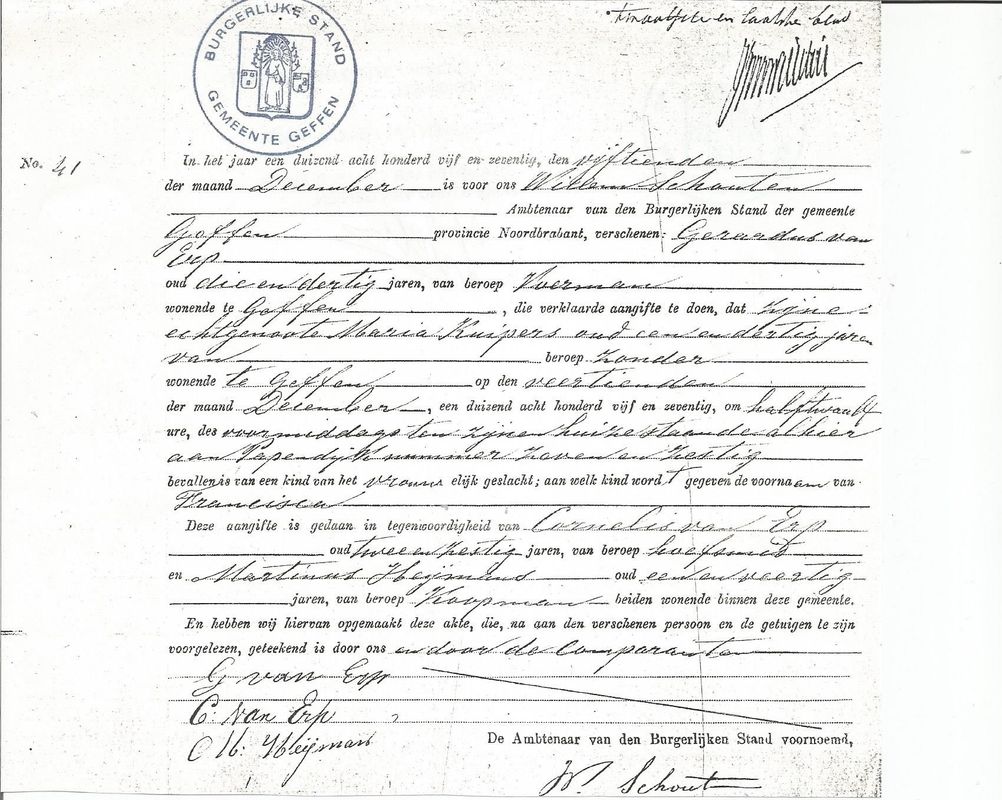 BURGERLIJKE STAND
GEMEENTE GEFFEN
en laatste blad
No. 41
In het jaar een duizend acht honderd vijf en zeventig, den vijftienden
der maand December is voor ons Willem Schouten
Ambtenaar van den Burgerlijken Stand der gemeente
Geffen provincie Noordbrabant, verschenen: Gerardus van
Erp
oud drie en dertig jaren, van beroep Voerman
wonende te Geffen, die verklaarde aangifte te doen, dat zijne
echtgenoote Maria Kuipers oud een en dertig jaren
van beroep zonder
wonende te Geffen op den veertienden
der maand December, een duizend acht honderd vijf en zeventig, om half twaalf
ure, des voormiddags ten zijnen huize staande alhier
aan Papendijk nummer zeven en zestig
bevallen is van een kind van het vrouwelijk geslacht; aan welk kind wordt gegeven de voornaam van
Francisca
Deze aangifte is gedaan in tegenwoordigheid van Cornelis van Erp
oud twee en zestig jaren, van beroep hoefsmid
en Martinus Heijmans oud een en veertig
jaren, van beroep Koopman beiden wonende binnen deze gemeente.
En hebben wij hiervan opgemaakt deze akte, die, na aan den verschenen persoon en de getuigen te zijn
voorgelezen, geteekend is door ons en door de Comparanten
G van Erp
C. van Erp
M: Heijmans
De Ambtenaar van den Burgerlijken Stand voornoemd,
W. Schout